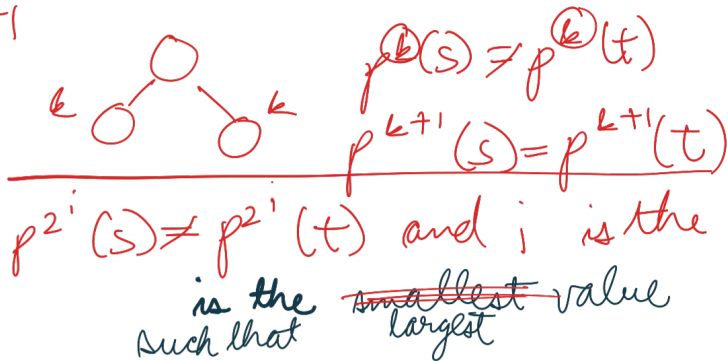 -1
k k
p^k(s) ≠ p^k(t)
p^{k+1}(s) = p^{k+1}(t)
p^{2^i}(s) ≠ p^{2^i}(t) and i is the
is the smallest value
such that largest